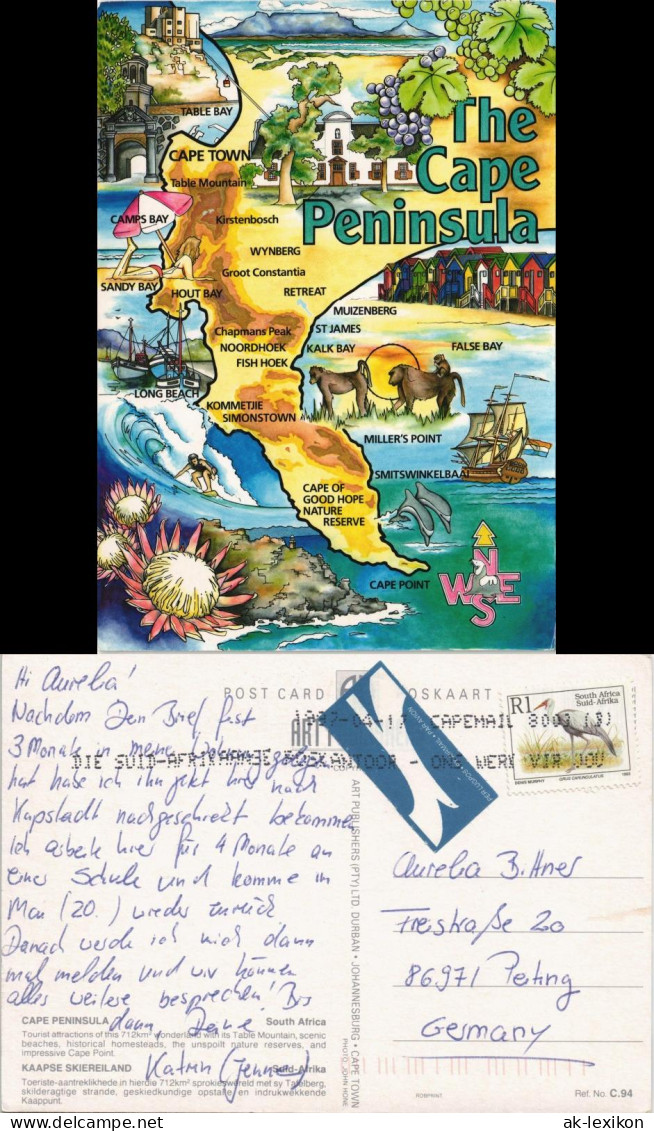 TABLE BAY
The
Cape
Peninsula
CAPE TOWN
Table Mountain
CAMPS BAY
Kirstenbosch
WYNBERG
Groot Constantia
SANDY BAY
HOUT BAY
RETREAT
MUIZENBERG
Chapmans Peak
ST JAMES
NOORDHOEK
KALK BAY
FALSE BAY
FISH HOEK
LONG BEACH
KOMMETJIE
SIMONSTOWN
MILLER'S POINT
SMITSWINKELBAAI
CAPE OF
GOOD HOPE
NATURE
RESERVE
CAPE POINT
N
W E
S
Hi Aurelia!
Nachdem Dein Brief fast
3 Monate in meine
hat habe ich ihn jetzt hier nach
Kapstadt nachgeschickt bekommen
Ich arbeite hier für 4 Monate an
einer Schule und komme im
Mai (20.) wieder zurück
Danach werde ich mich dann
mal melden und wir können
alles weitere besprechen! Bis
dann, Deine
Katrin
POST CARD POSKAART
CAPEMAIL 8003
DIE SUID-AFRIKAANSE POSKANTOOR - ONS WERK VIR JOU
PER LUGPOS
PAR AVION
R1
South Africa
Suid-Afrika
DENIS MURPHY GRUS CARUNCULATUS
ART PUBLISHERS (PTY) LTD. DURBAN • JOHANNESBURG • CAPE TOWN
PHOTO: JOHN HONE
Aurelia Bittner
Freistraße 20
86971 Peiting
Germany
CAPE PENINSULA South Africa
Tourist attractions of this 712km² wonderland with its Table Mountain, scenic
beaches, historical homesteads, the unspoilt nature reserves, and
impressive Cape Point.
KAAPSE SKIEREILAND Suid-Afrika
Toeriste-aantreklikhede in hierdie 712km² sprokieswêreld met sy Tafelberg,
skilderagtige strande, geskiedkundige opstalle en indrukwekkende
Kaappunt.
ROBPRINT.
Ref. No. C.94
ak-lexikon
delcampe.net